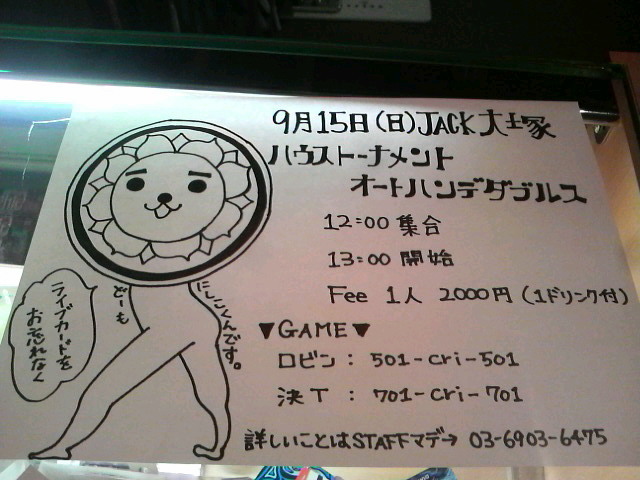 9月15日(日)JACK大塚
ハウストーナメント
オートハンデダブルス
12:00 集合
13:00 開始
Fee 1人 2000円(1ドリンク付)
▼GAME▼
ロビン: 501-cri-501
決T : 701-cri-701
詳しいことはSTAFFマデ→ 03-6903-6475
にしこくんです。
どーも
ライブカードを
お忘れなく